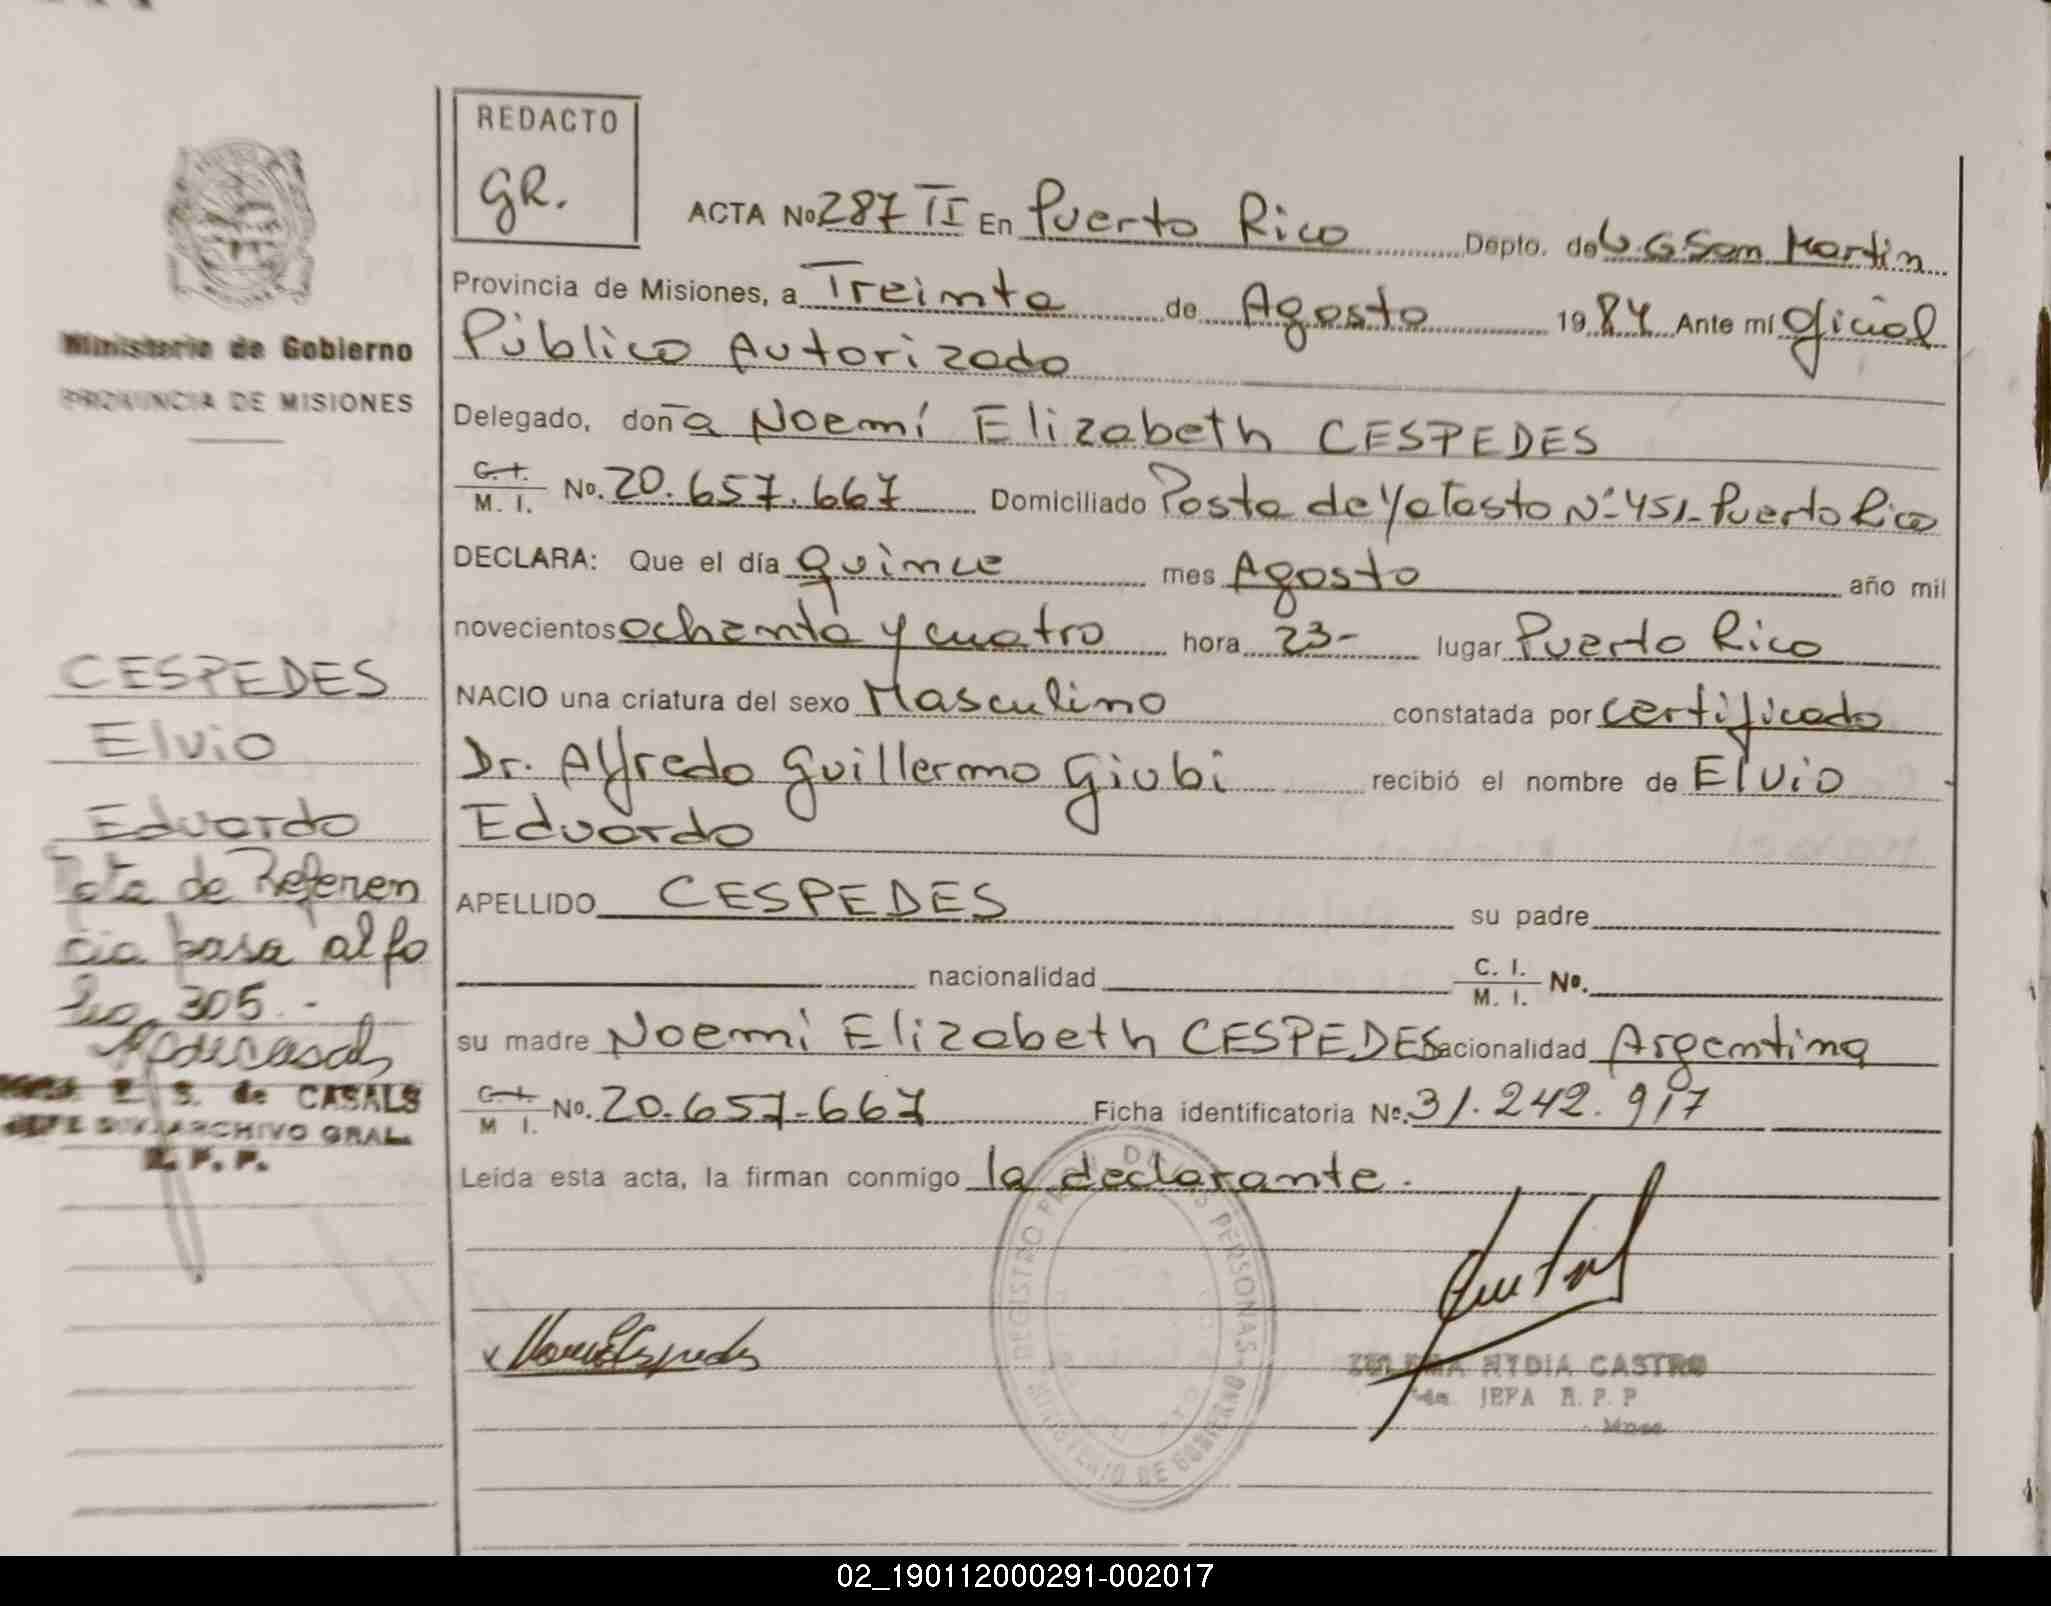 REDACTO
GR.
ACTA No 287 II En Puerto Rico Depto. de L. G San Martin
Provincia de Misiones, a Treinta de Agosto 1984 Ante mí Oficial
Público Autorizado
Delegado, doña Noemí Elizabeth CESPEDES
C. I. / M. I. No. 20.657.667 Domiciliado Posta de Yatasto Nº 451 - Puerto Rico
DECLARA: Que el día quince mes Agosto año mil
novecientos ochenta y cuatro hora 23- lugar Puerto Rico
NACIO una criatura del sexo Masculino constatada por certificado
Dr. Alfredo Guillermo Giubi recibió el nombre de Elvio
Eduardo
APELLIDO CESPEDES su padre
nacionalidad C. I. / M. I. No.
su madre Noemí Elizabeth CESPEDES nacionalidad Argentina
C. I. / M. I. No. 20.657.667 Ficha identificatoria No. 31.242.917
Leída esta acta, la firman conmigo la declarante.
Ministerio de Gobierno
PROVINCIA DE MISIONES
CESPEDES
Elvio
Eduardo
Nota de Referen
cia pasa al fo
lio 305.-
E. S. de CASALS
JEFE DIV. ARCHIVO GRAL.
R. P. P.
REGISTRO PROV. DE LAS PERSONAS
MINISTERIO DE GOBIERNO
ZULEMA NYDIA CASTRO
JEFA R. P. P
Mnes
02_190112000291-002017